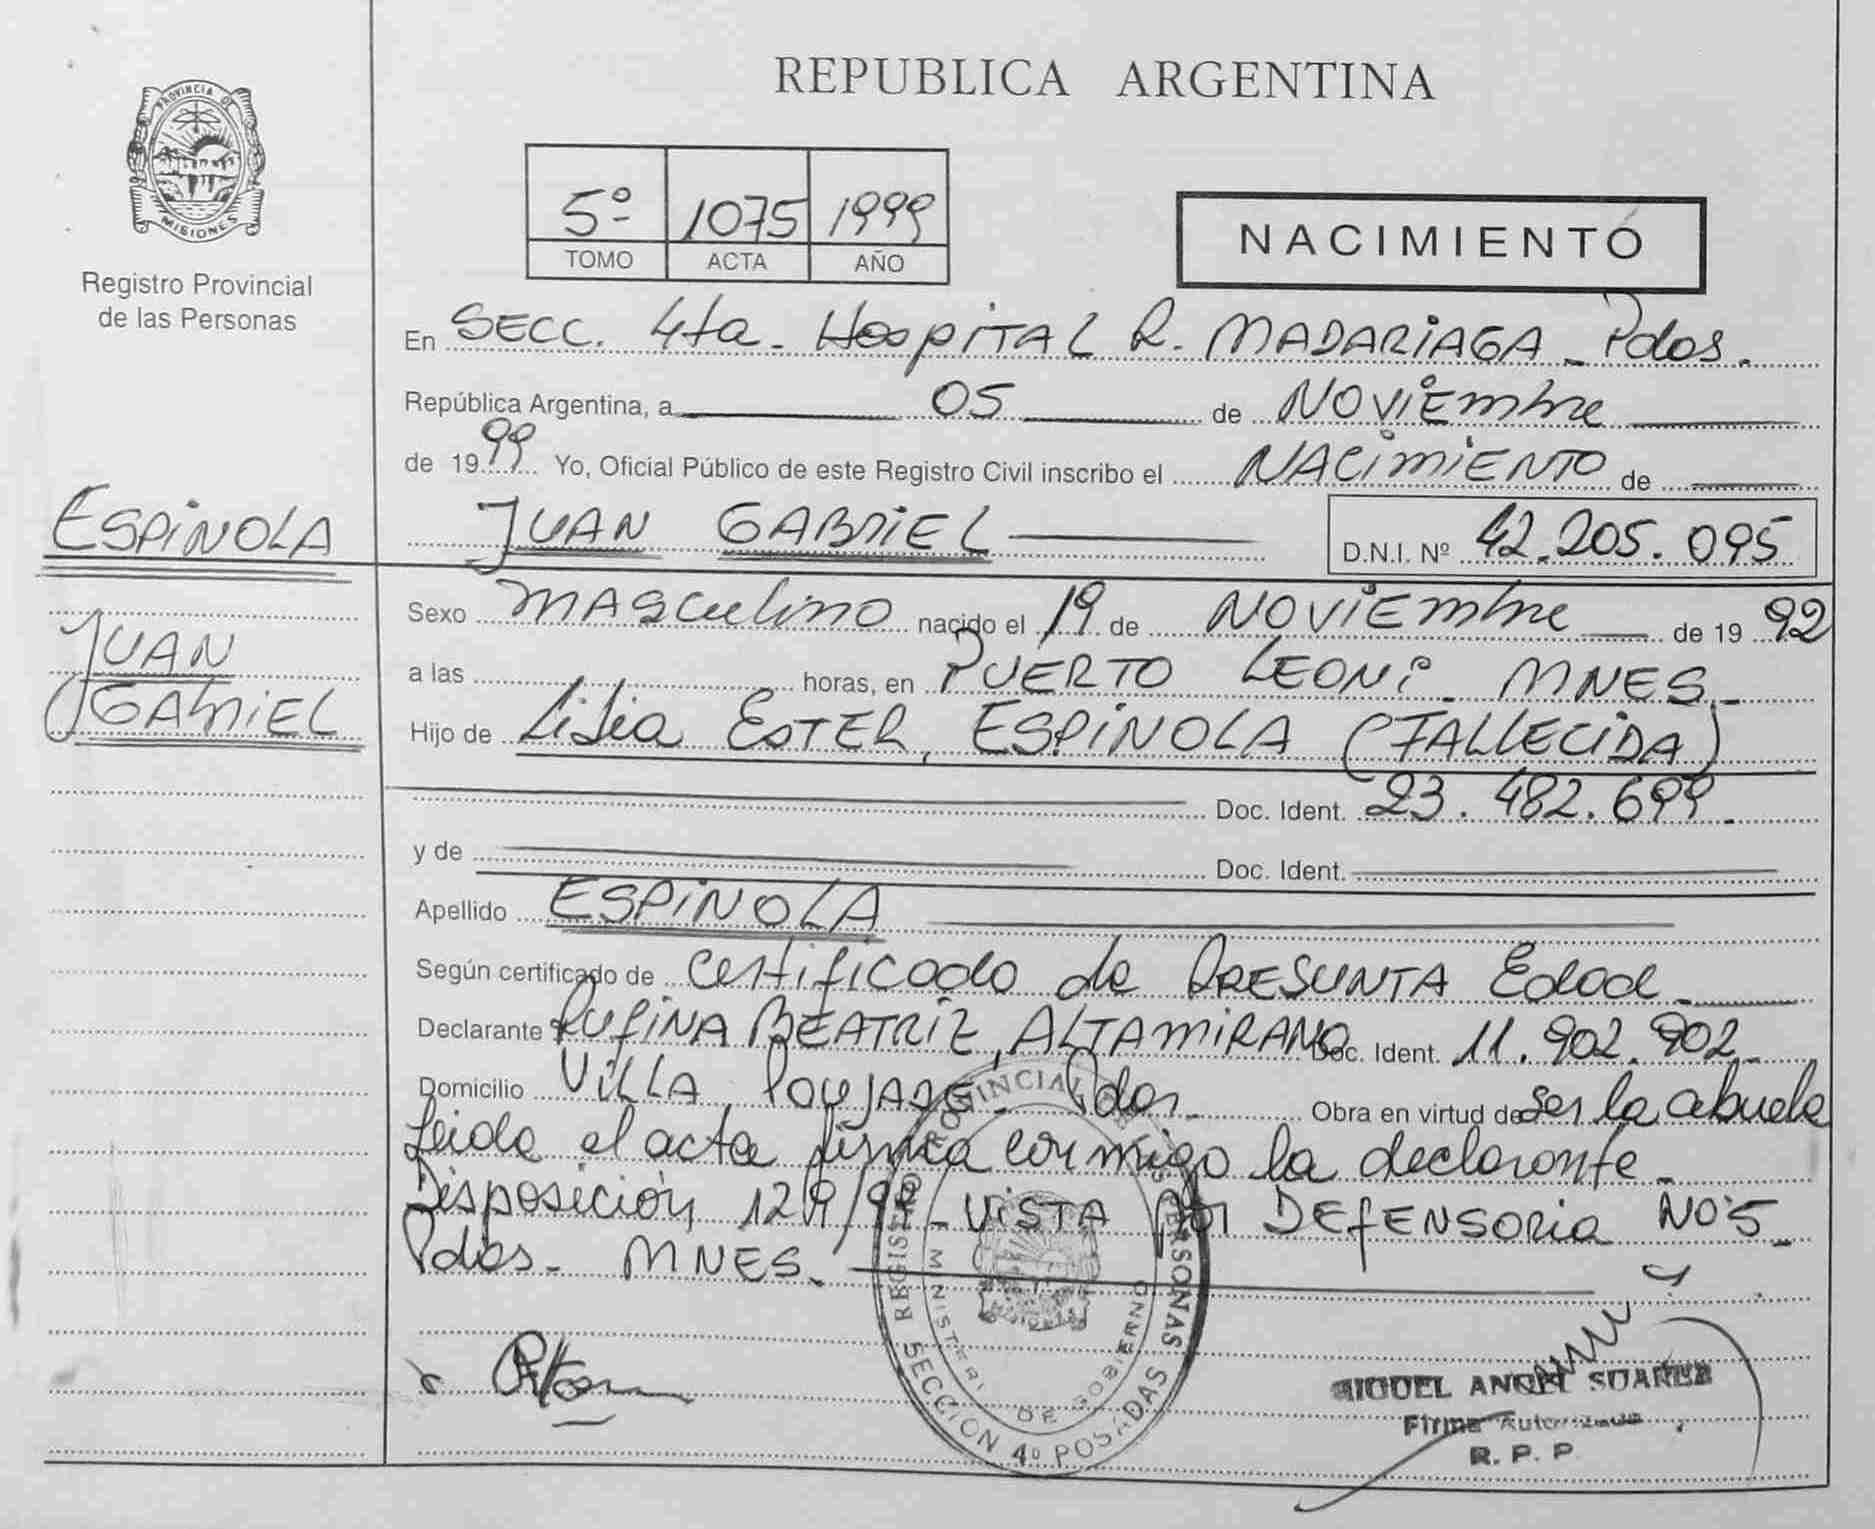 REPUBLICA ARGENTINA
PROVINCIA DE
MISIONES
Registro Provincial
de las Personas
5º 1075 1999
TOMO ACTA AÑO
NACIMIENTO
En SECC. 4ta. HospiTAL R. MADARIAGA - Pdos.
República Argentina, a 05 de NOViEmbre
de 1999 Yo, Oficial Público de este Registro Civil inscribo el NACimiENTO de
ESPiNOLA
JUAN GABRiEL D.N.I. Nº 42.205.095
JUAN
GABRiEL
Sexo MASculino nacido el 19 de NOViEmbre de 1992
a las horas, en PUERTO LEONi - MNES.
Hijo de EsTER, ESPiNOLA (FALLECiDA)
Doc. Ident. 23.482.699.
y de Doc. Ident.
Apellido ESPiNOLA
Según certificado de certificado de PRESUNTA Edad
Declarante RufiNA BEATRiZ, ALTAmiRANO Doc. Ident. 11.902.902
Domicilio ViLLA PouJADE - Pdos. Obra en virtud de ser la abuela
Leida el acta firma conmigo la declarante.
Disposición 1219/99 - ViSTA por DEfENSORiA Nº5
Pdos. MNES.
REGISTRO PROVINCIAL DE LAS PERSONAS
MINISTERIO DE GOBIERNO
SECCION 4º POSADAS
MIGUEL ANGEL SUAREZ
Firma Autorizada
R. P. P